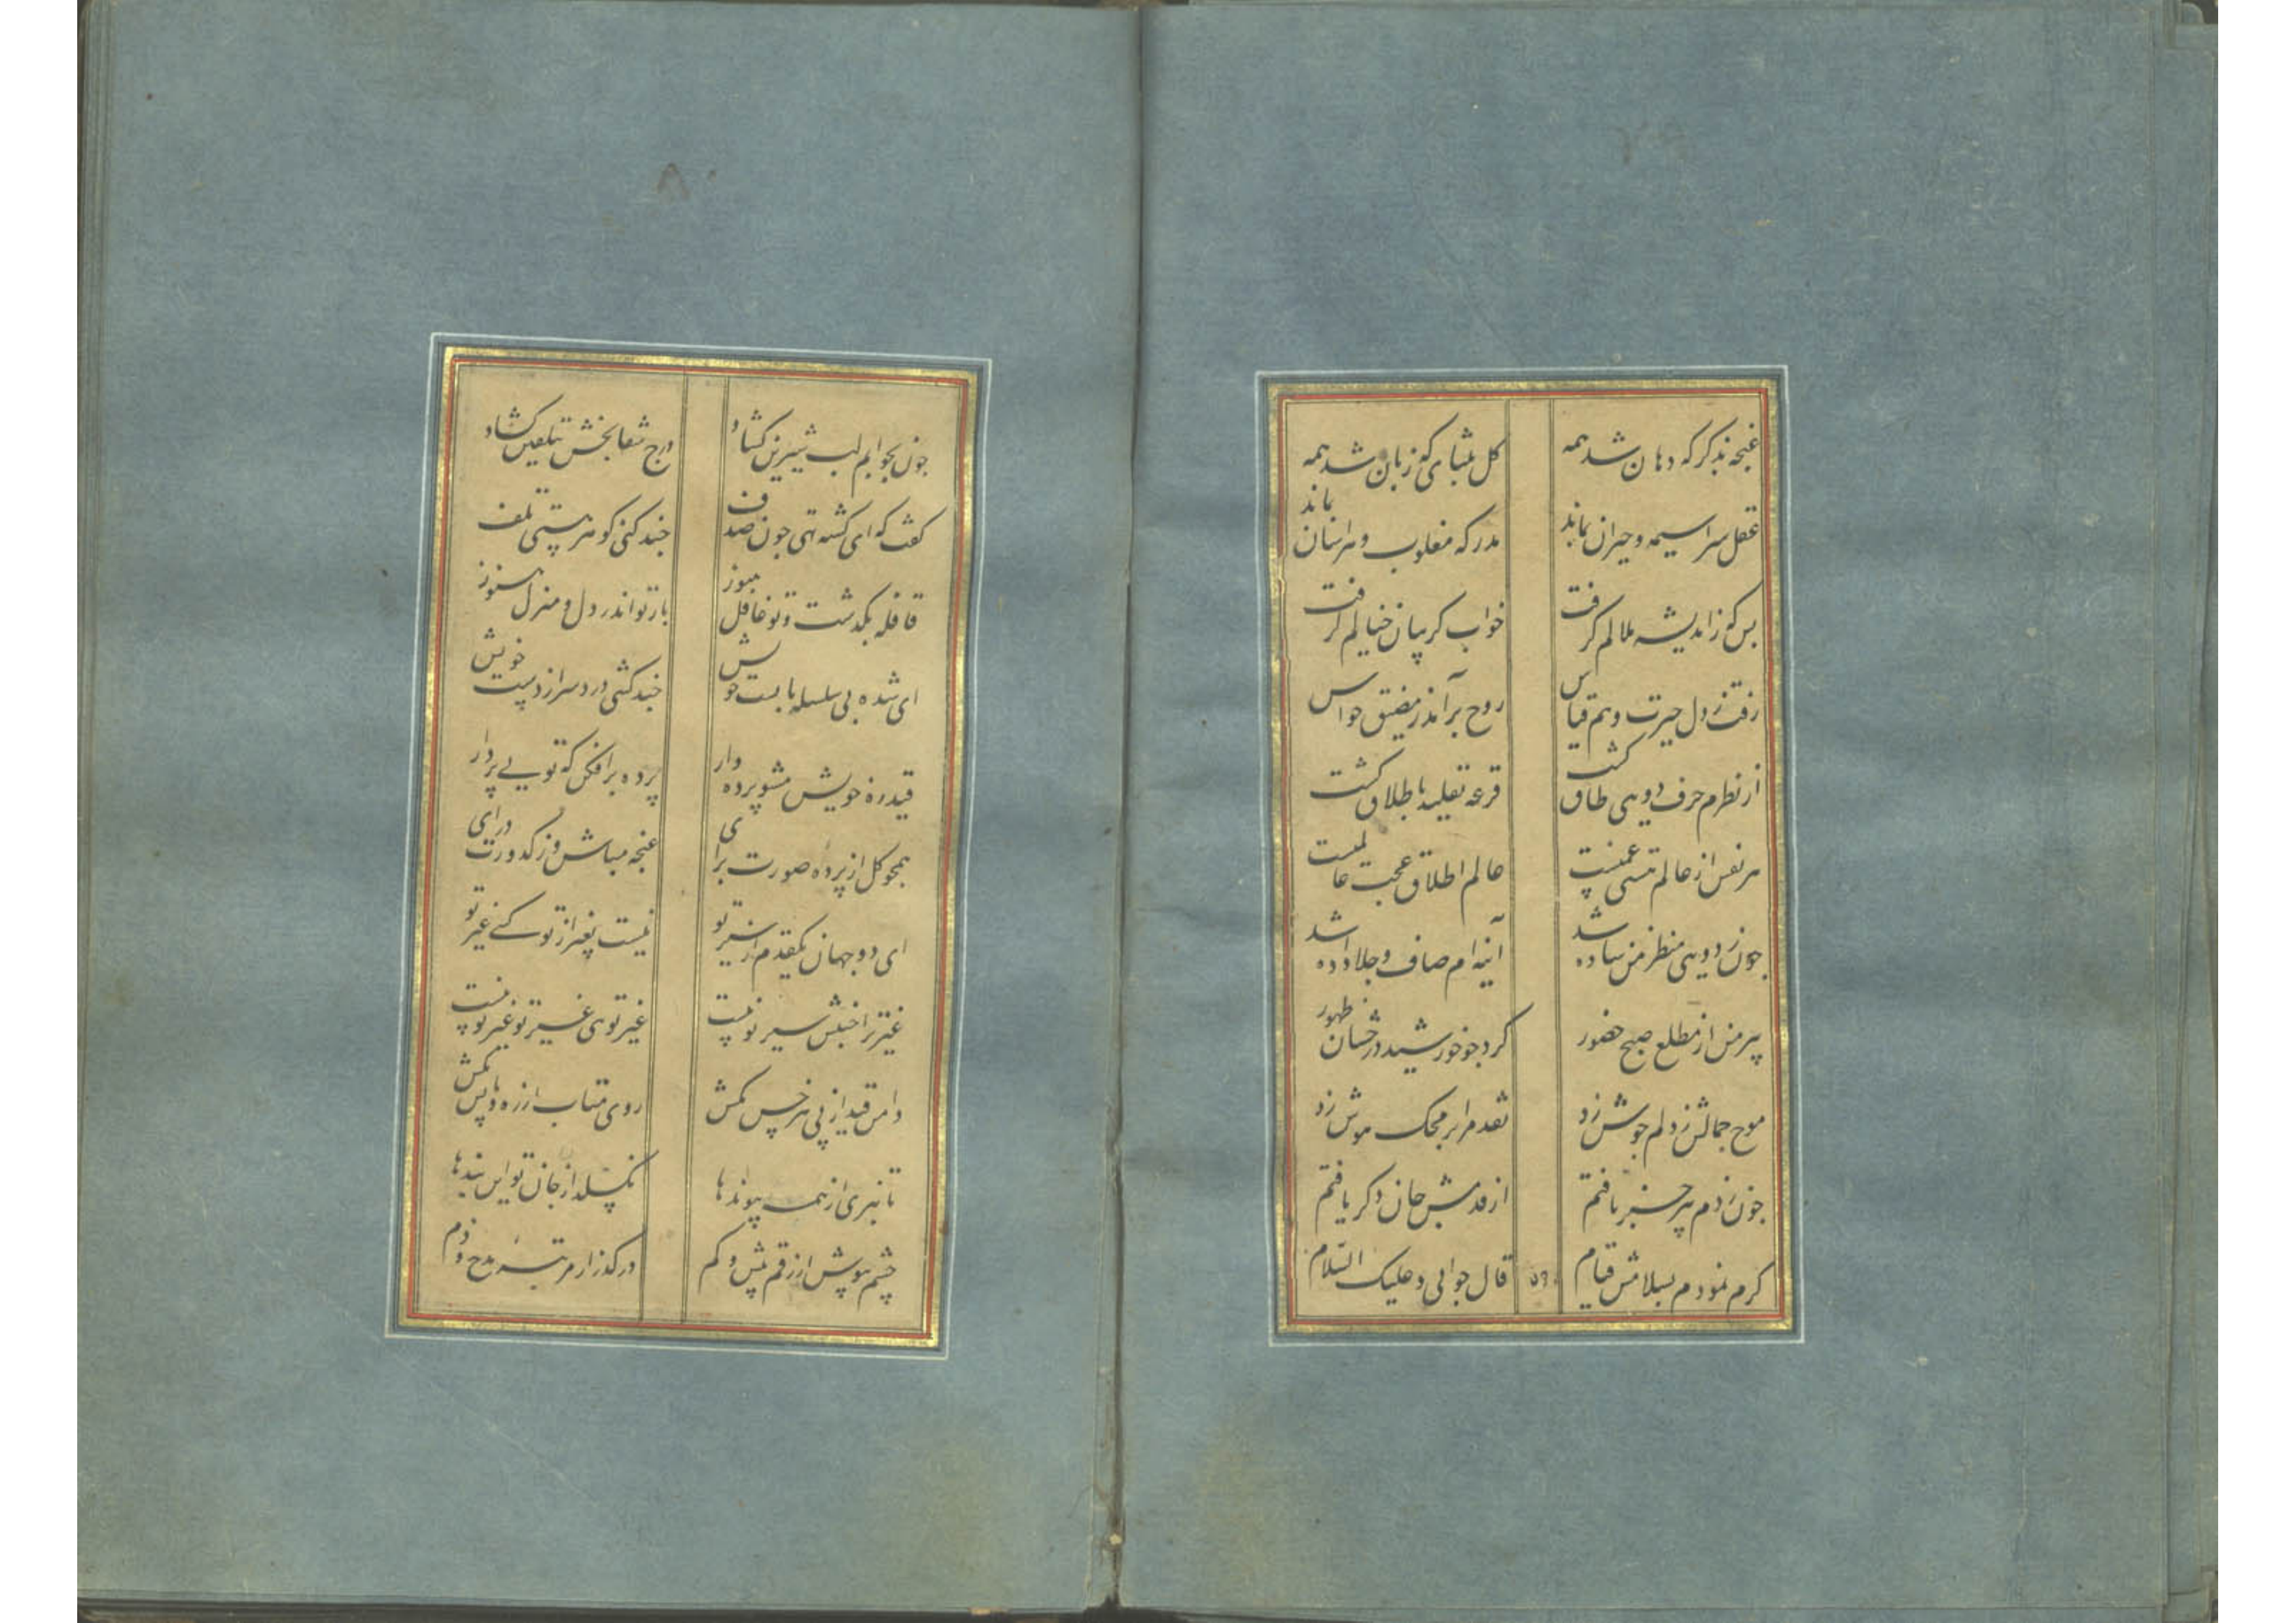 غنچه بذکرکه دهان شد همه
کل بثنای که زبان شد همه
عقل سراسیمه و حیران بماند
مدرکه مغلوب و هراسان بماند
بس که ز اندیشه ملالم کرفت
خواب کریبان خیالم کرفت
رفت ز دل حیرت و هم قیاس
روح برآمد ز مضیق حواس
از نظرم حرف دویی طاق کشت
قرعه تقلید باطلاق کشت
هر نفس از عالم هستی غمیست
عالم اطلاق عجب عالمیست
چون ز دویی منظر من ساده شد
آینه ام صاف و جلا داده شد
پیر من از مطلع صبح حضور
کرد چو خورشید درخشان ظهور
موج جمالش ز دلم جوش زد
نقد مرا بر محک هوش زد
چون ز دم پیر خبر یافتم
از قدمش جان دکر یافتم
کرم نمودم بسلامش قیام
قال جوابی و علیک السلام
چون بجوابم لب شیرین کشاد
درج شفابخش بتلقین کشاد
کفت که ای کشته تهی چون صدف
چند کنی کوهر هستی تلف
قافله بکذشت و تو غافل هنوز
بار تو اندر دل و منزل هنوز
ای شده بی سلسله پابست خویش
چند کشی درد سر از دست خویش
قید ره خویش مشو پرده دار
پرده برافکن که تویی پردار
همچو کل از پرده صورت برای
غنچه مباش و ز کدورت درای
ای دو جهان یکقدم از سیر تو
نیست بغیر از تو کسی غیر تو
غیر ترا جنبش سیر تو نیست
غیر تویی غیر تو غیر تو نیست
دامن قید از پی هر خس مکش
روی متاب از ره و پا پس مکش
تا نبری از همه پیوندها
نکسلد از جان تو این بندها
چشم بپوش از رقم بیش و کم
درکذر از مرتبه مدح و ذم